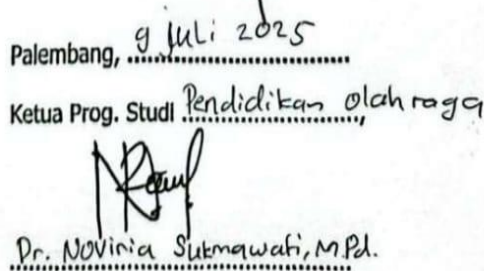 Palembang, 9 Juli 2025
Ketua Prog. Studi Pendidikan Olahraga,
Dr. Noviria Sukmawati, M.Pd.